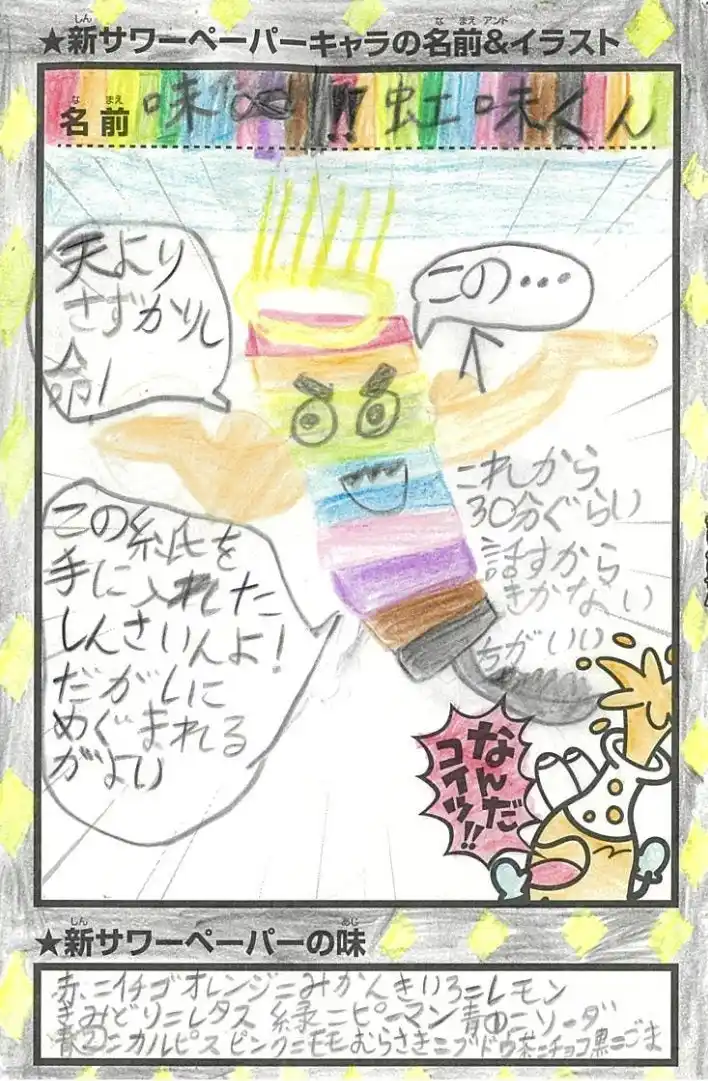 ★新サワーペーパーキャラの名前&イラスト
しん
な まえ アンド
名前 味 ∞ !! 虹味くん
な まえ
天より
さずかりし
命!
この…
この紙を
手に入れた
しんさいんよ!
だがしに
めぐまれる
がよい
これから
30分ぐらい
話すから
きかない
ちがいい
なんだ
コイツ!!
★新サワーペーパーの味
しん
あじ
赤=イチゴ オレンジ=みかん きいろ=レモン
きみどり=レタス 緑=ピーマン 青①=ソーダ
青②=カルピス ピンク=モモ むらさき=ブドウ 茶=チョコ 黒=ごま